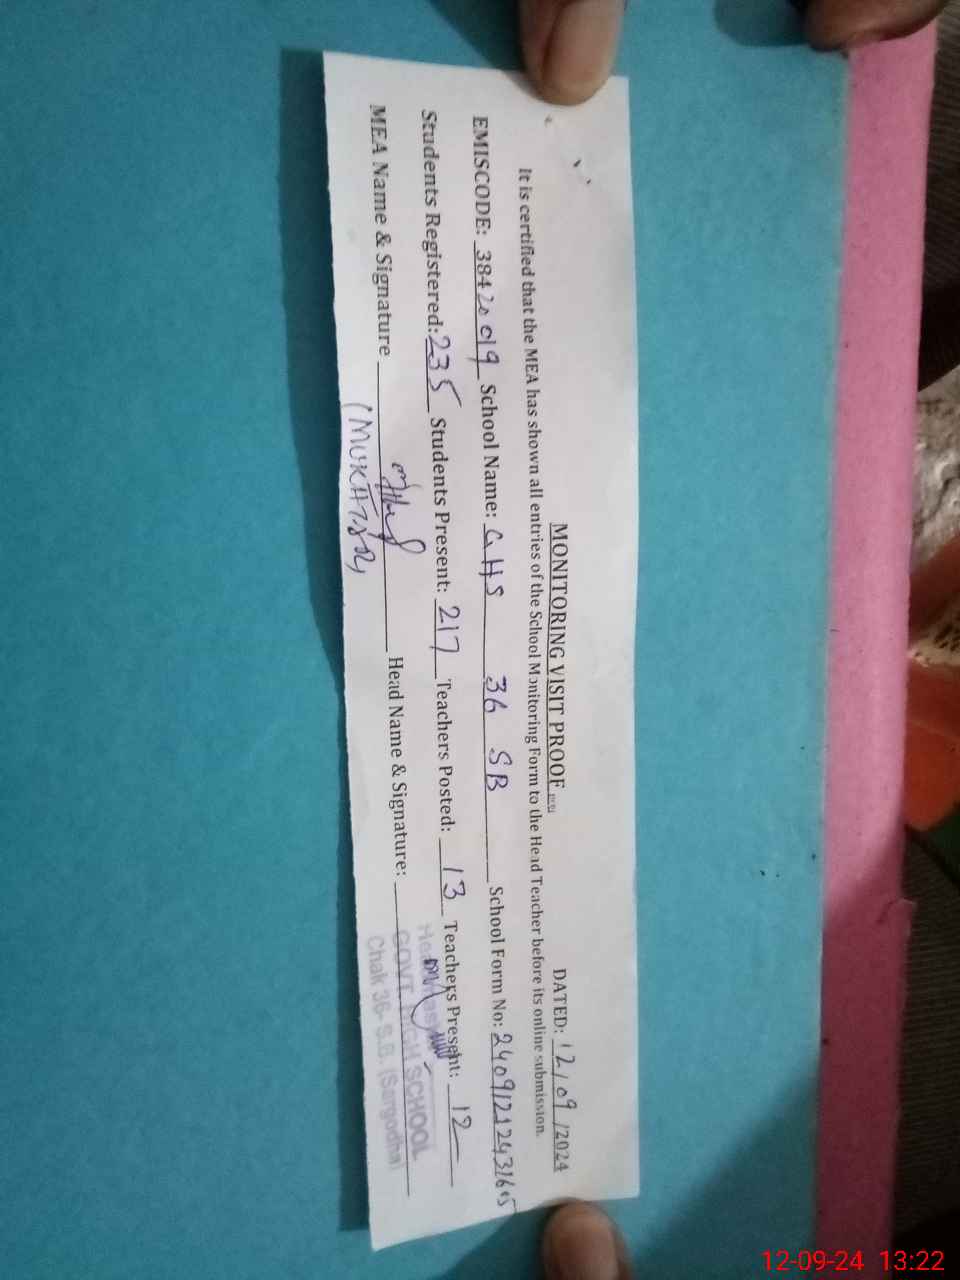 MONITORING VISIT PROOF
DATED: 12/09/2024
It is certified that the MEA has shown all entries of the School Monitoring Form to the Head Teacher before its online submission.
EMISCODE: 38420019 School Name: GHS 36 SB School Form No:
Students Registered: 235 Students Present: 217 Teachers Posted: 13 Teachers Present: 12
MEA Name & Signature Head Name & Signature:
GOVT. HIGH SCHOOL
Chak 36-S.B. (Sargodha)
12-09-24 13:22